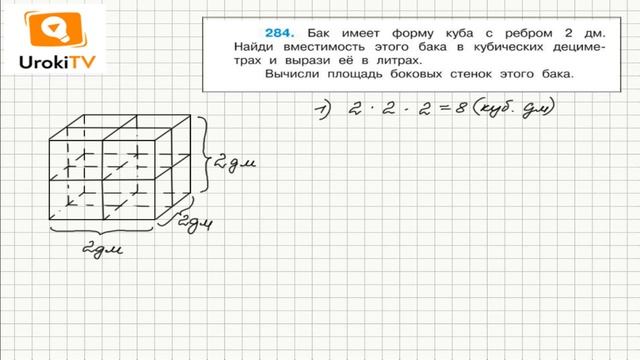 UrokiTV
284. Бак имеет форму куба с ребром 2 дм.
Найди вместимость этого бака в кубических дециме-
трах и вырази её в литрах.
Вычисли площадь боковых стенок этого бака.
1) 2 · 2 · 2 = 8 (куб. дм)
2 дм
2 дм
2 дм